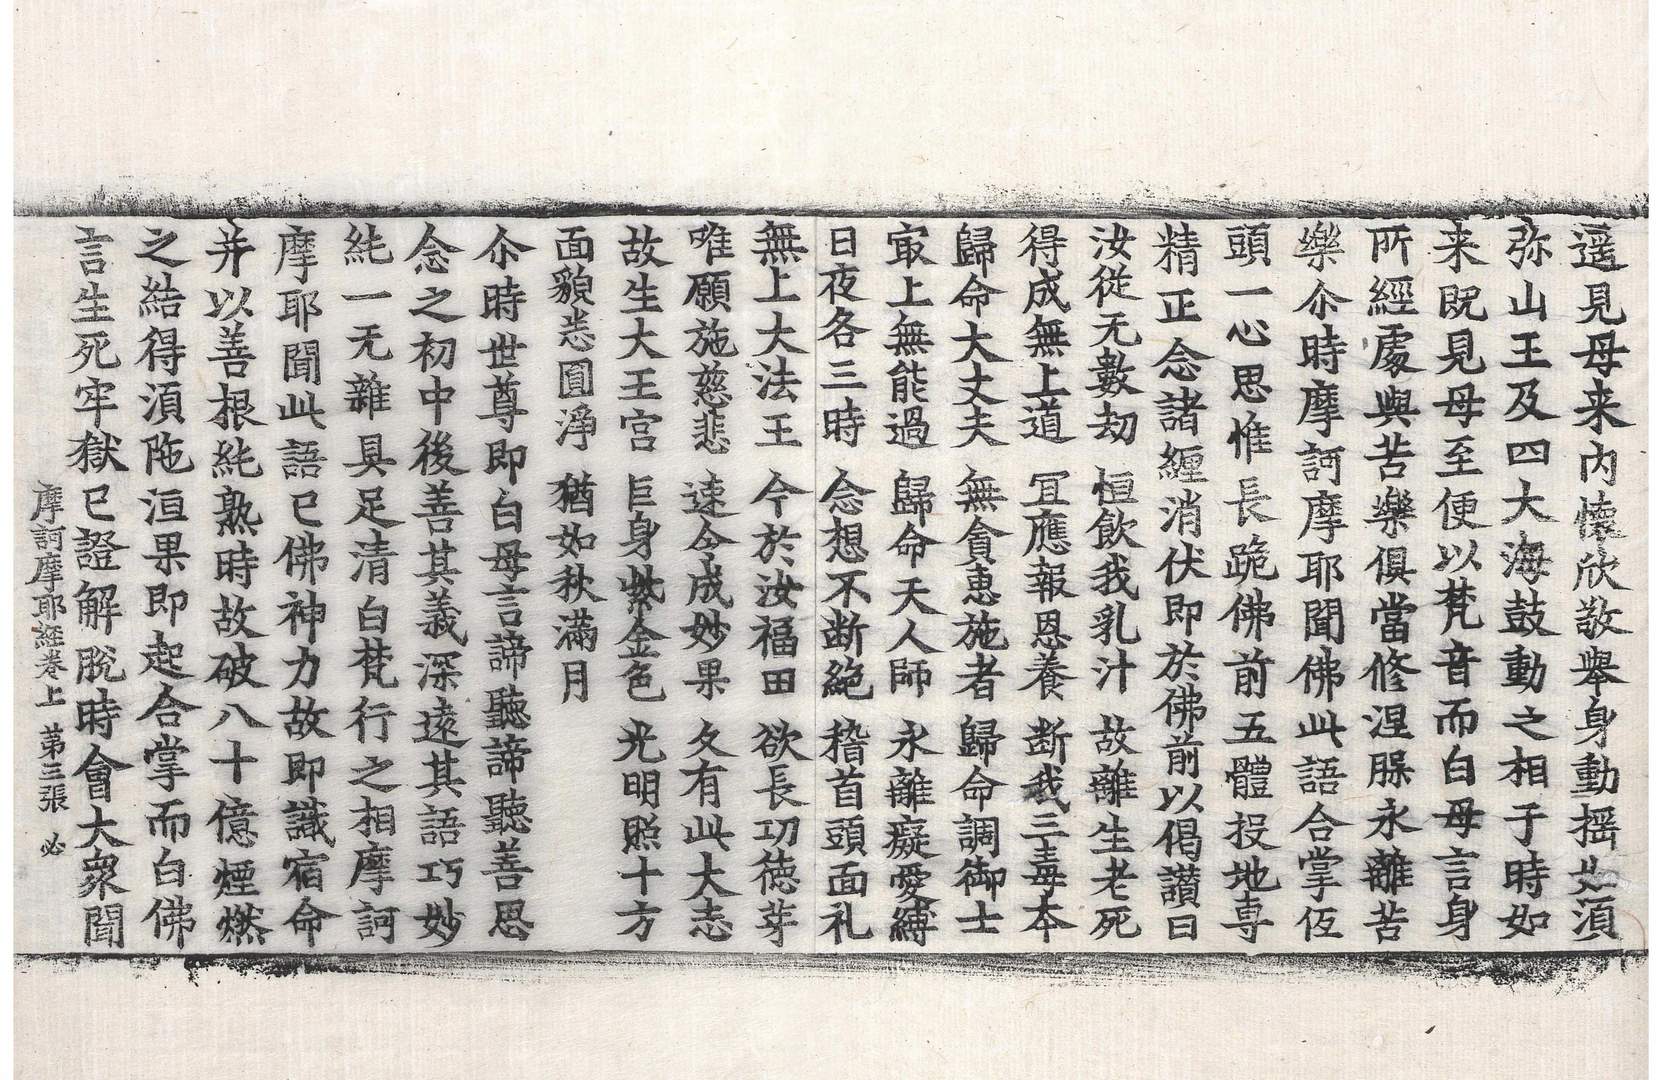 遥見母来內懷欣敬舉身動揺如湏
弥山王及四大海鼓動之相子時如
来既見母至便以梵音而白母言身
所經處與苦樂俱當修涅膜永離苦
樂尒時摩訶摩耶聞佛此語合掌伍
頭一心思惟長跪佛前五體投地専
精正念諸纏消伏即於佛前以偈讃曰
汝從无數劫　恒飲我乳汁　故離生老死
得成無上道　冝應報恩養　断我三毒本
歸命大丈夫　無貪恵施者　歸命調御士
㝡上無能過　歸命天人師　永離癡愛縛
日夜各三時　念想不断絶　稽首頭面礼
無上大法王　今於汝福田　欲長功徳芽
唯願施慈悲　速令成妙果　久有此大志
故生大王宮　巨身紫金色　光明照十方
面貌悉圓淨　猶如秋滿月
尒時世尊即白母言諦聽諦聽善思
念之初中後善其義深遠其語巧妙
純一无雜具足清白梵行之相摩訶
摩耶聞此語已佛神力故即識宿命
并以善根純熟時故破八十億煙燃
之結得湏陁洹果即起合掌而白佛
言生死牢獄已證解脫時會大衆聞
摩訶摩耶経卷上　第三張　必